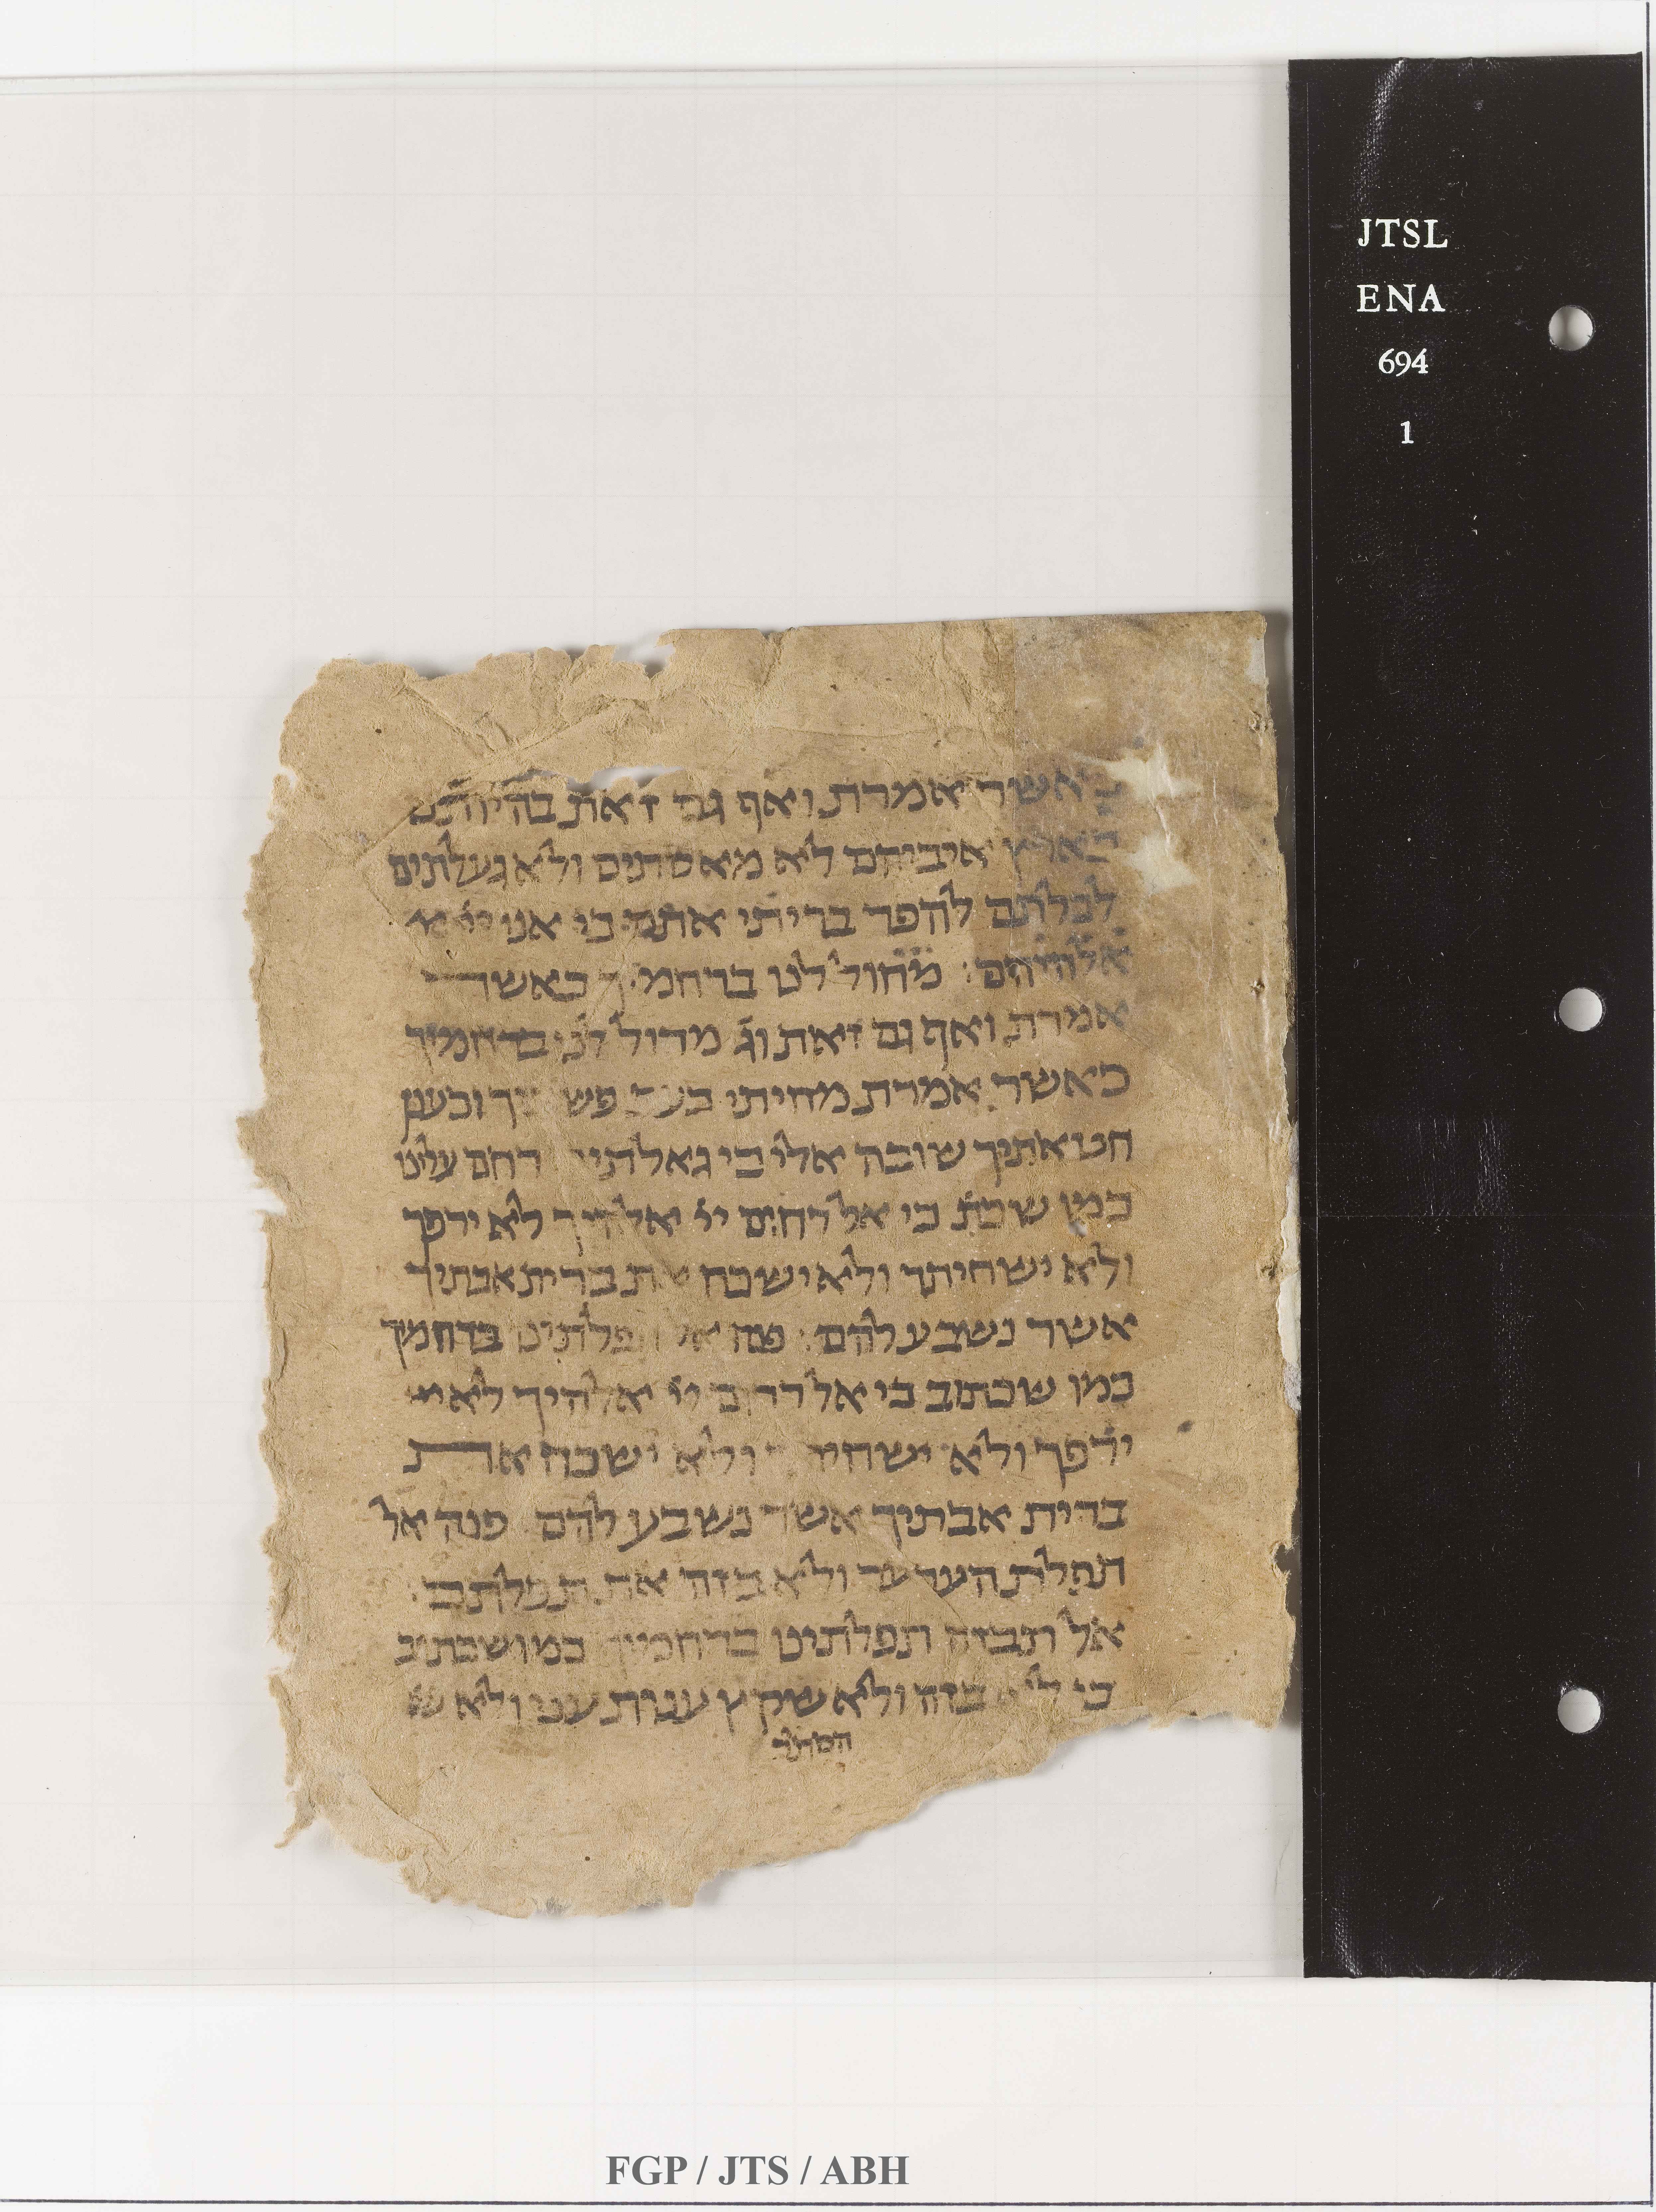 JTSL
ENA
694
1
כאשר אמרת ואף גם זאת בהיותם
בארץ איביהם לא מאסתים ולא געלתים
לכלתם להפר בריתי אתם כי אני ייי
אלהיהם: מחול לנו ברחמיך כאשר
אמרת ואף גם זאת וג מחול לנו ברחמיך
כאשר אמרת מחיתי כעב פשעיך וכענן
חטאתיך שובה אלי כי גאלתיך רחם עלינו
כמו שכת כי אל רחום ייי אלהיך לא ירפך
ולא ישחיתך ולא ישכח את ברית אבתיך
אשר נשבע להם: פנה אל תפלתינו ברחמיך
כמו שכתוב כי אל רחום ייי אלהיך לא
ירפך ולא ישחיתך ולא ישכח את
ברית אבתיך אשר נשבע להם פנה אל
תפלת הערער ולא בזה את תפלתם
אל תבזה תפלתינו ברחמיך כמו שכתוב
כי לא בזה ולא שקץ ענות עני ולא
הסתיר
FGP / JTS / ABH